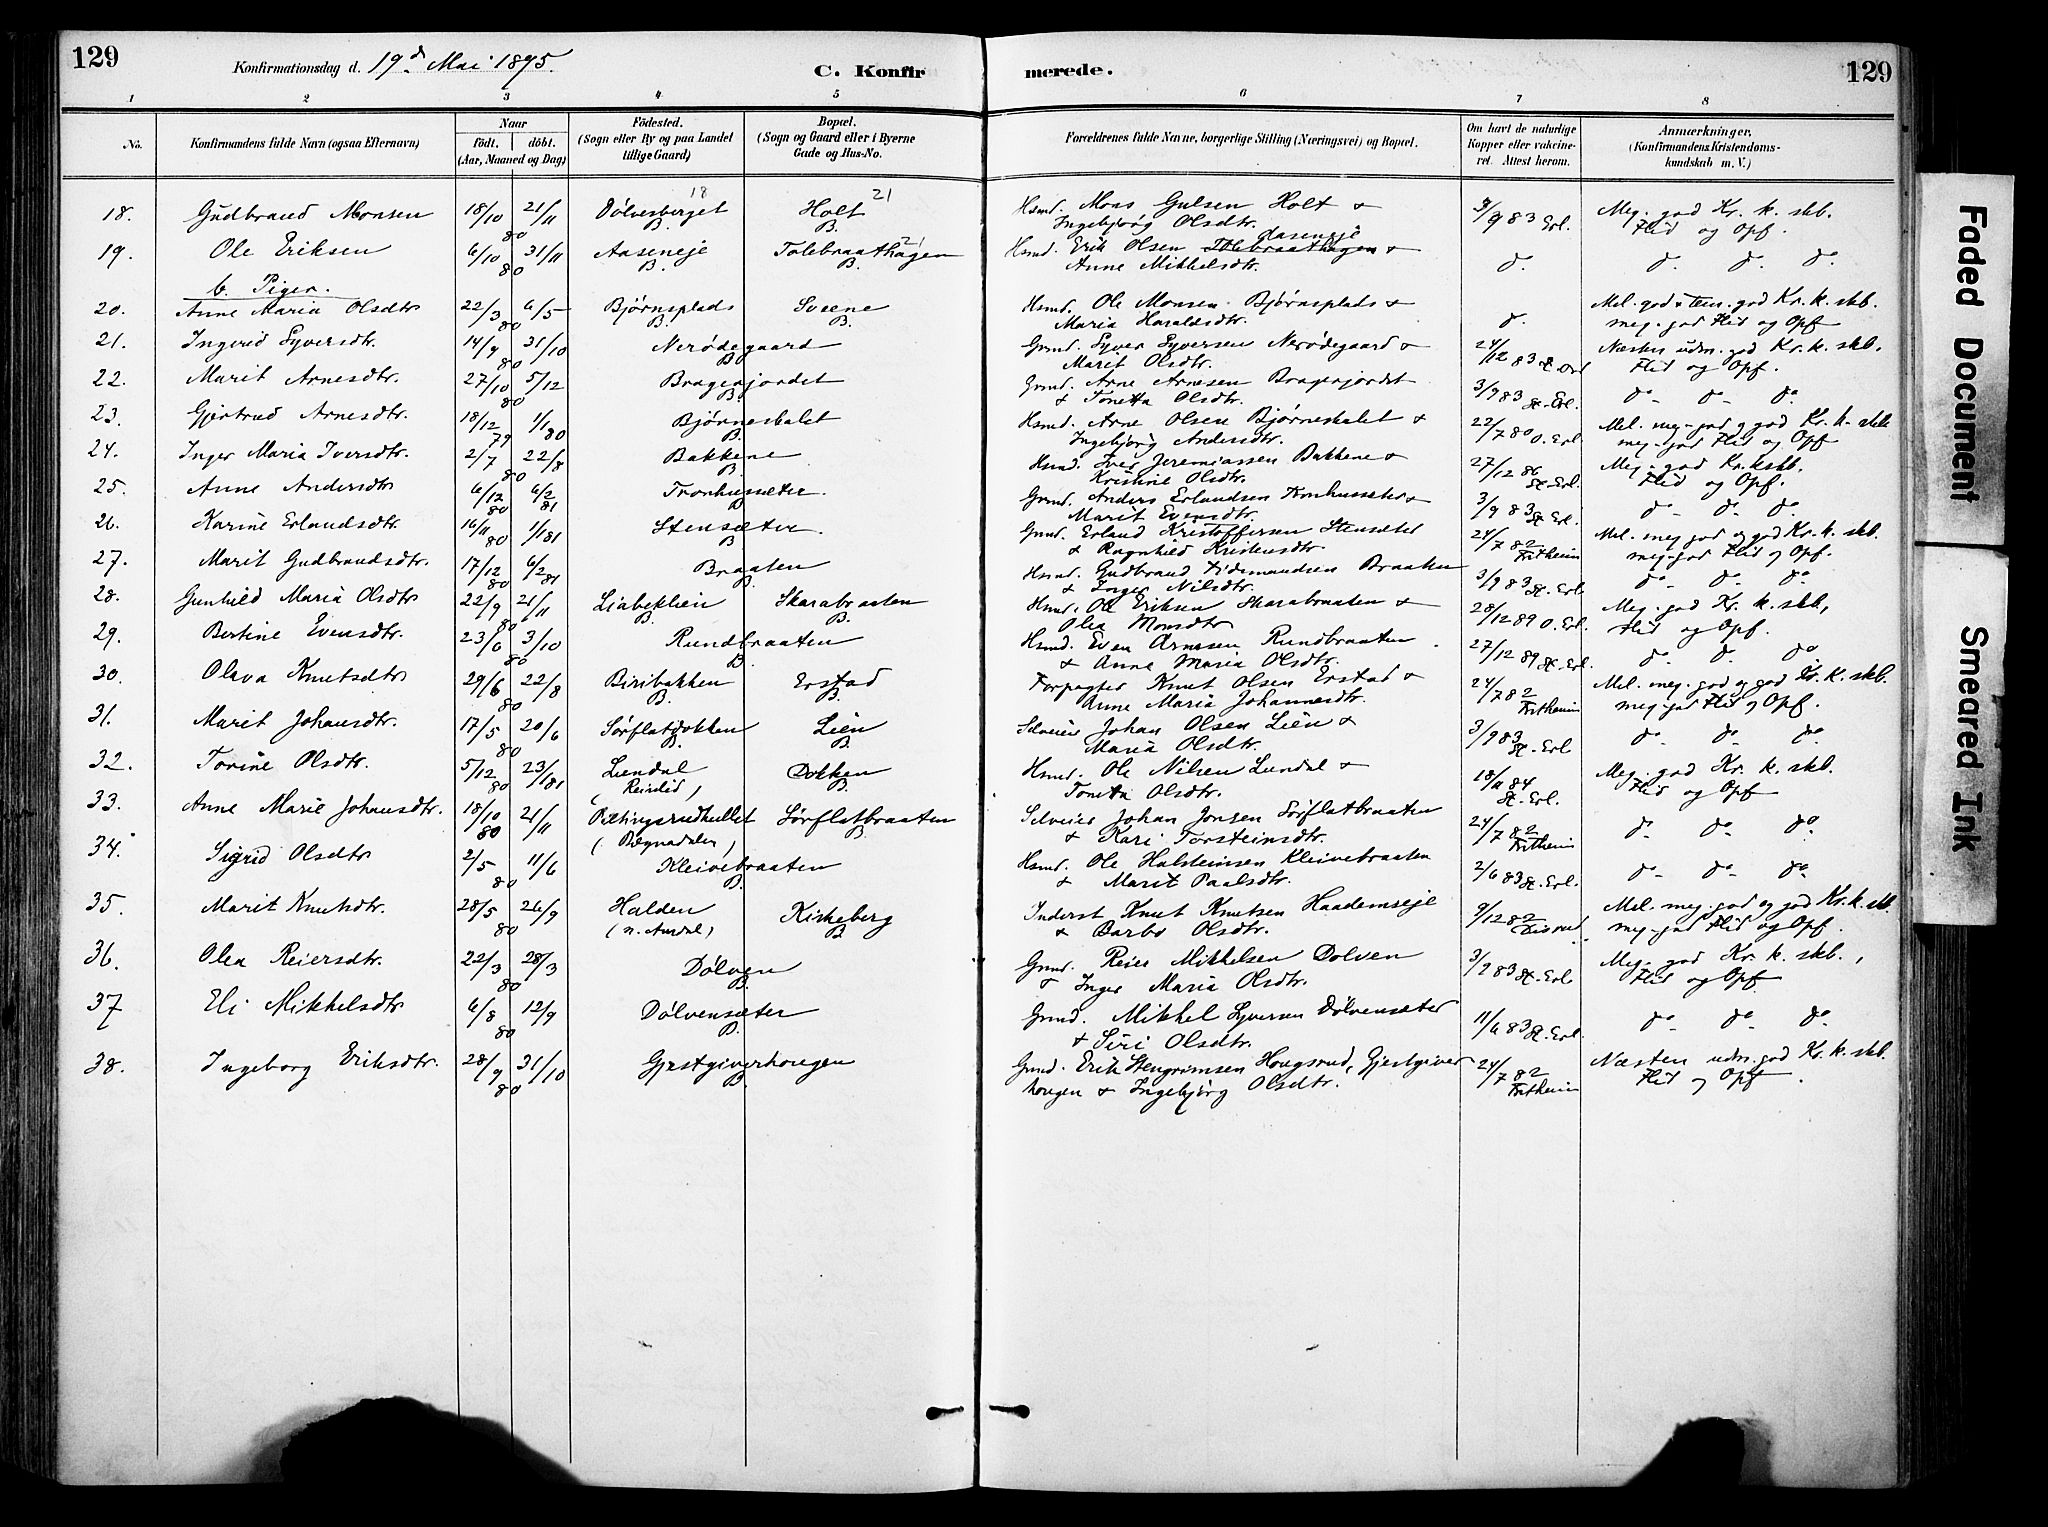 129
Konfirmationsdag d. 19d Mai 1895.
C. Konfir
merede.
129
1 2 3 4 5 6 7 8
No.
Konfirmandens fulde Navn (ogsaa Efternavn)
Naar
født. døbt.
(Aar, Maaned og Dag)
Fødested.
(Sogn eller By og paa Landet tillige Gaard)
Bopæl.
(Sogn og Gaard eller i Byerne Gade og Hus-No.
Forældrenes fulde Navne, borgerlige Stilling (Næringsvei) og Bopæl.
Om havt de naturlige Kopper eller vakcineret. Attest herom.
Anmærkninger.
(Konfirmandens Kristendomskundskab m. V.)
18. Gudbrand Monsen 18/10 80 21/11 Dølvesberget 18 B. Holt 21 B. Hsmd. Mons Gulsen Holt & Ingebjørg Olsdtr. 3/9 83 Erl. Meg. god Kr. k. skb. Flid og Opf.
19. Ole Eriksen 6/10 80 31/11 Aaseneje B. Tolebraathagen 21 B. Hsmd. Erik Olsen Tolebraathagen Aaseneje & Anne Mikkelsdtr. do. do. do. do.
b. Piger.
20. Anne Maria Olsdtr 22/3 80 6/5 Bjørnsplads B. Sveene B. Hsmd. Ole Monsen Bjørnsplads & Maria Haraldsdtr. do. Mel. god & tem. god Kr. k. skb. meg. god Flid og Opf
21. Ingerid Syversdtr. 14/9 80 31/10 Nerødegaard B. Grmd. Syver Syversen Nerødegaard & Marit Olsdtr. 24/12 83 Næsten udm. god Kr. k. skb. Flid og Opf.
22. Marit Arnesdtr. 27/10 80 5/12 Bragerjordet B. Grmd. Arne Arnesen Bragerjordet & Tonetta Olsdtr. 3/9 83 St. Erl. do do do.
23. Gjertrud Arnesdtr. 18/12 79 1/1 80 Bjørneskalet B. Hsmd. Arne Olsen Bjørneskalet & Ingebjørg Andersdtr. 22/7 80 O. Erl. Mel. meg. god og god Kr. k. skb meg. god Flid og Opf
24. Inger Maria Iversdtr. 2/7 80 22/8 Bakkene B. Hsmd. Iver Jeremiassen Bakkene & Kristine Olsdtr. 27/12 86 St. Erl. Meg. god Kr. k skb. Flid og Opf.
25. Anne Andersdtr 6/12 80 6/2 81 Tronhussæter. B Grmd. Anders Erlandsen Tronhussæter & Marit Evensdtr. 3/9 83 St. Erl. do do. do.
26. Karine Erlandsdtr. 16/11 80 1/1 81 Stensæter B Grmd. Erland Kristoffersen Stensæter & Ragnhild Kristensdtr. 24/7 82 Fritheim Mel. meg god og god Kr. k. skb. meg. god Flid og Opf.
27. Marit Gudbrandsdtr. 17/12 80 6/2 81 Braaten B. Hsmd. Gudbrand Tidemandsen Braaten & Inger Nilsdtr. 3/9 83 St. Erl. do do do.
28. Gunhild Maria Olsdtr 22/9 80 21/11 Liabeklien B. Skarabraaten B. Hsmd. Ole Eriksen Skarabraaten & Olea Monsdtr 28/12 89 O. Erl. Meg. god Kr. k. skb, Flid og Opf.
29. Bertine Evensdtr. 23/6 80 3/10 Rundbraaten B. Hsmd. Even Arnesen Rundbraaten & Anne Maria Olsdtr. 27/12 89 St. Erl. do. do. do
30. Olava Knutsdtr 29/6 80 22/8 Biribakken B. Erstad B. Forpagter Knut Olsen Erstad & Anne Maria Johannesdtr. 24/7 82 Fritheim Mel. meg. god og god Kr. k. skb. meg. god Flid og Opf.
31. Marit Johansdtr. 17/5 80 20/6 Sørflatdokken B. Lien B. Selveier Johan Olsen Lien & Maria Olsdtr. 3/9 83 St. Erl do do do.
32. Torine Olsdtr. 5/12 80 23/1 81 Lundal (Reinlid) Dokken B. Hsmd. Ole Nilsen Lundal & Tonetta Olsdtr. 18/11 84 St. Erl. Meg. god Kr. k. skb. Flid og Opf
33. Anne Marie Johansdtr. 18/10 80 21/11 (Begnadalen) Sørflatbraaten B. Selveier Johan Jonsen Sørflatbraaten & Kari Torsteinsdtr. 24/7 82 Fritheim do do do.
34. Sigrid Olsdtr 2/5 80 11/6 Kleivebraaten B. Hsmd. Ole Halsteinsen Kleivebraaten & Marit Paalsdtr. 2/6 83 St. Erl. do do do
35. Marit Knutsdtr. 28/5 80 26/9 Halden (n. Aurdal) Kirkeberg B. Inderst Knut Knutsen Haademseje & Barbo Olsdtr. 9/12 82 Mel. meg. god og god Kr. k. skb. meg. god Flid og Opf.
36. Olea Reiersdtr. 22/3 80 28/3 Dølven B. Grmd. Reier Mikkelsen Dølven & Inger Maria Olsdtr. 3/9 83 St. Erl Meg. god Kr. k. skb., Flid og Opf
37 Eli Mikkelsdtr 6/8 80 12/9 Dølvensæter B. Grmd. Mikkel Syversen Dølvensæter & Siri Olsdtr. 11/6 83 St. Erl. do do do.
38. Ingeborg Eriksdtr. 28/9 80 31/10 Gjestgiverhougen B. Grmd. Erik Stengrimsen Hougsrud, Gjestgiverhougen & Ingebjørg Olsdtr. 24/7 82 Fritheim Næsten udm. god Kr. k. skb. Flid og Opf.
Faded Document
Smeared Ink